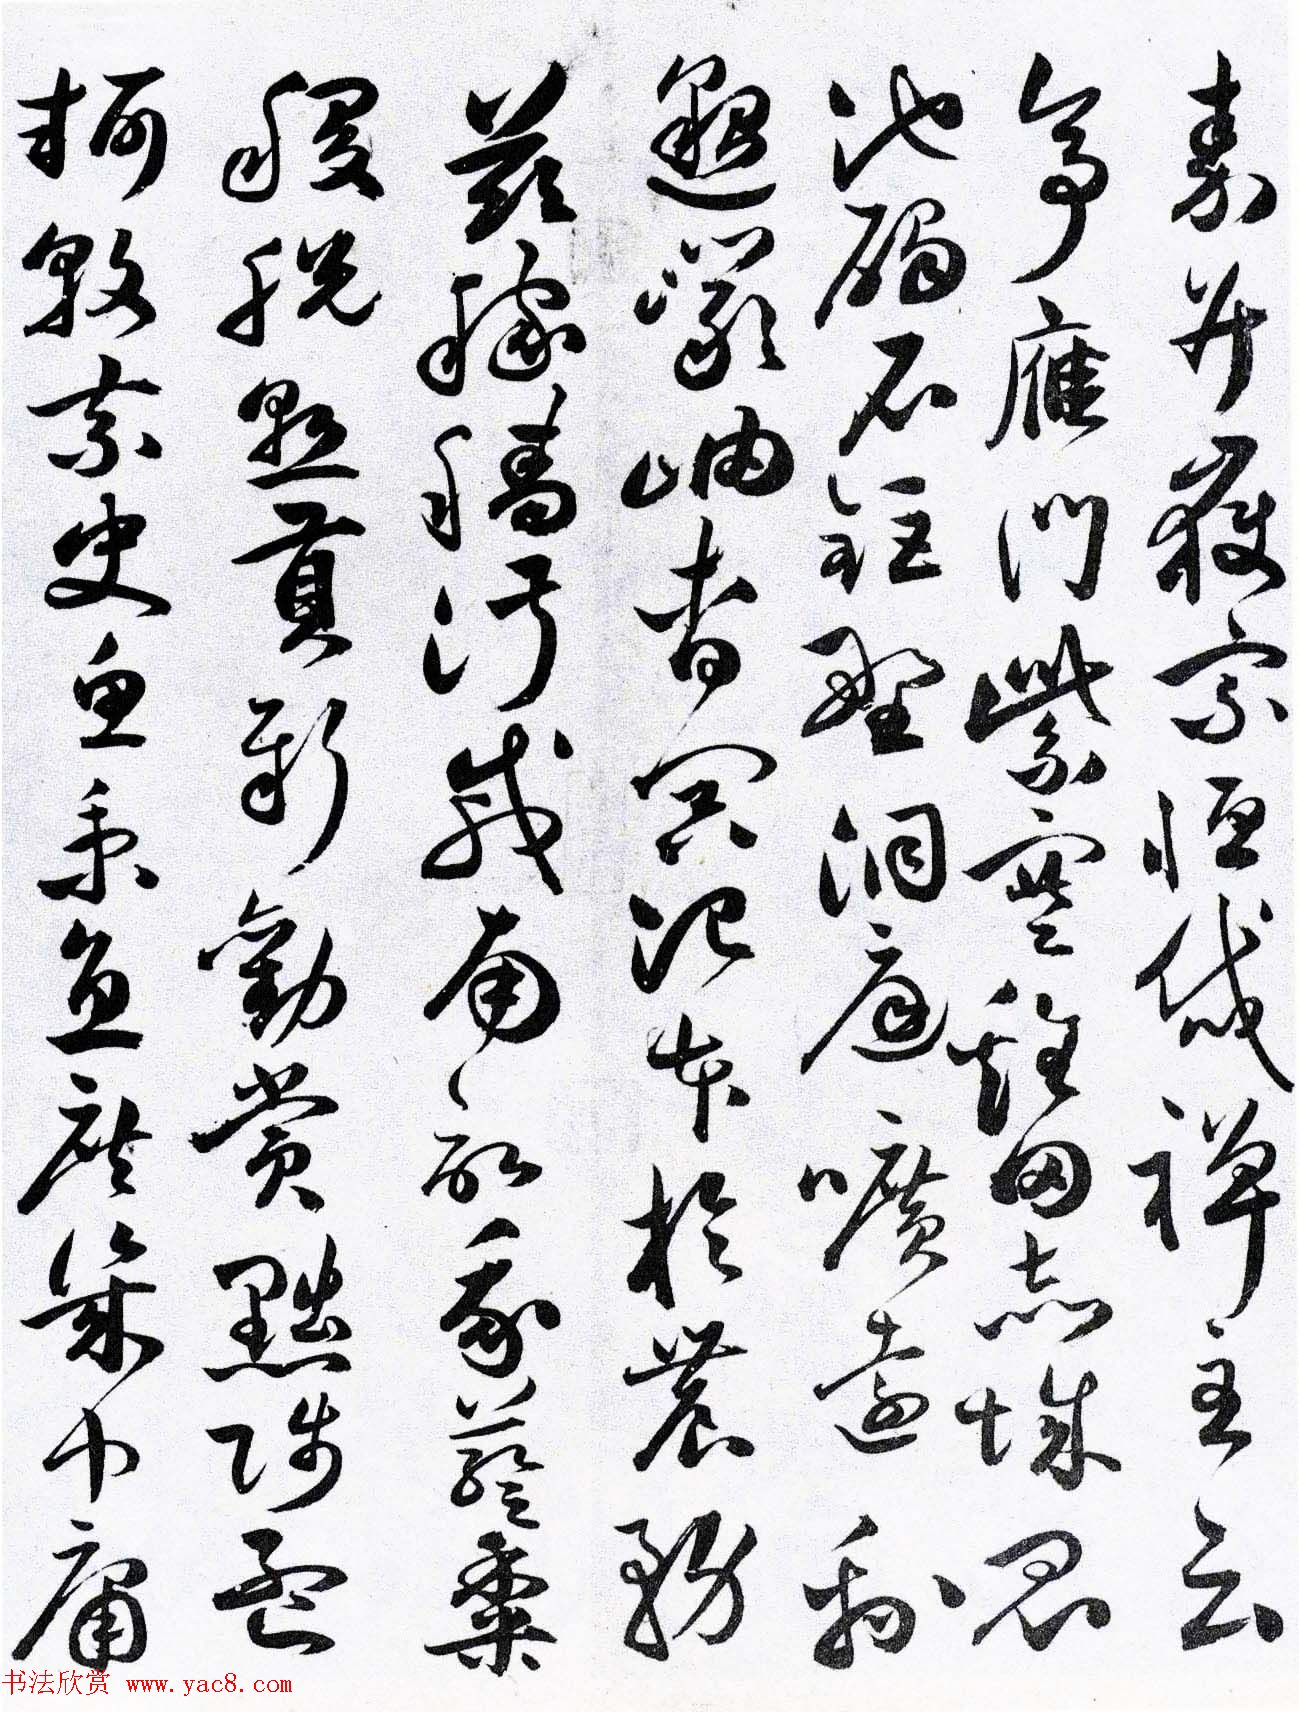 秦并嶽宗恒岱禪主云
亭雁門紫塞雞田赤城昆
池碣石鉅野洞庭曠遠綿
邈巖岫杳冥治本於農務
茲稼穡俶載南畝我藝黍
稷稅熟貢新勸賞黜陟孟
軻敦素史魚秉直庶幾中庸
书法欣赏 www.yac8.com